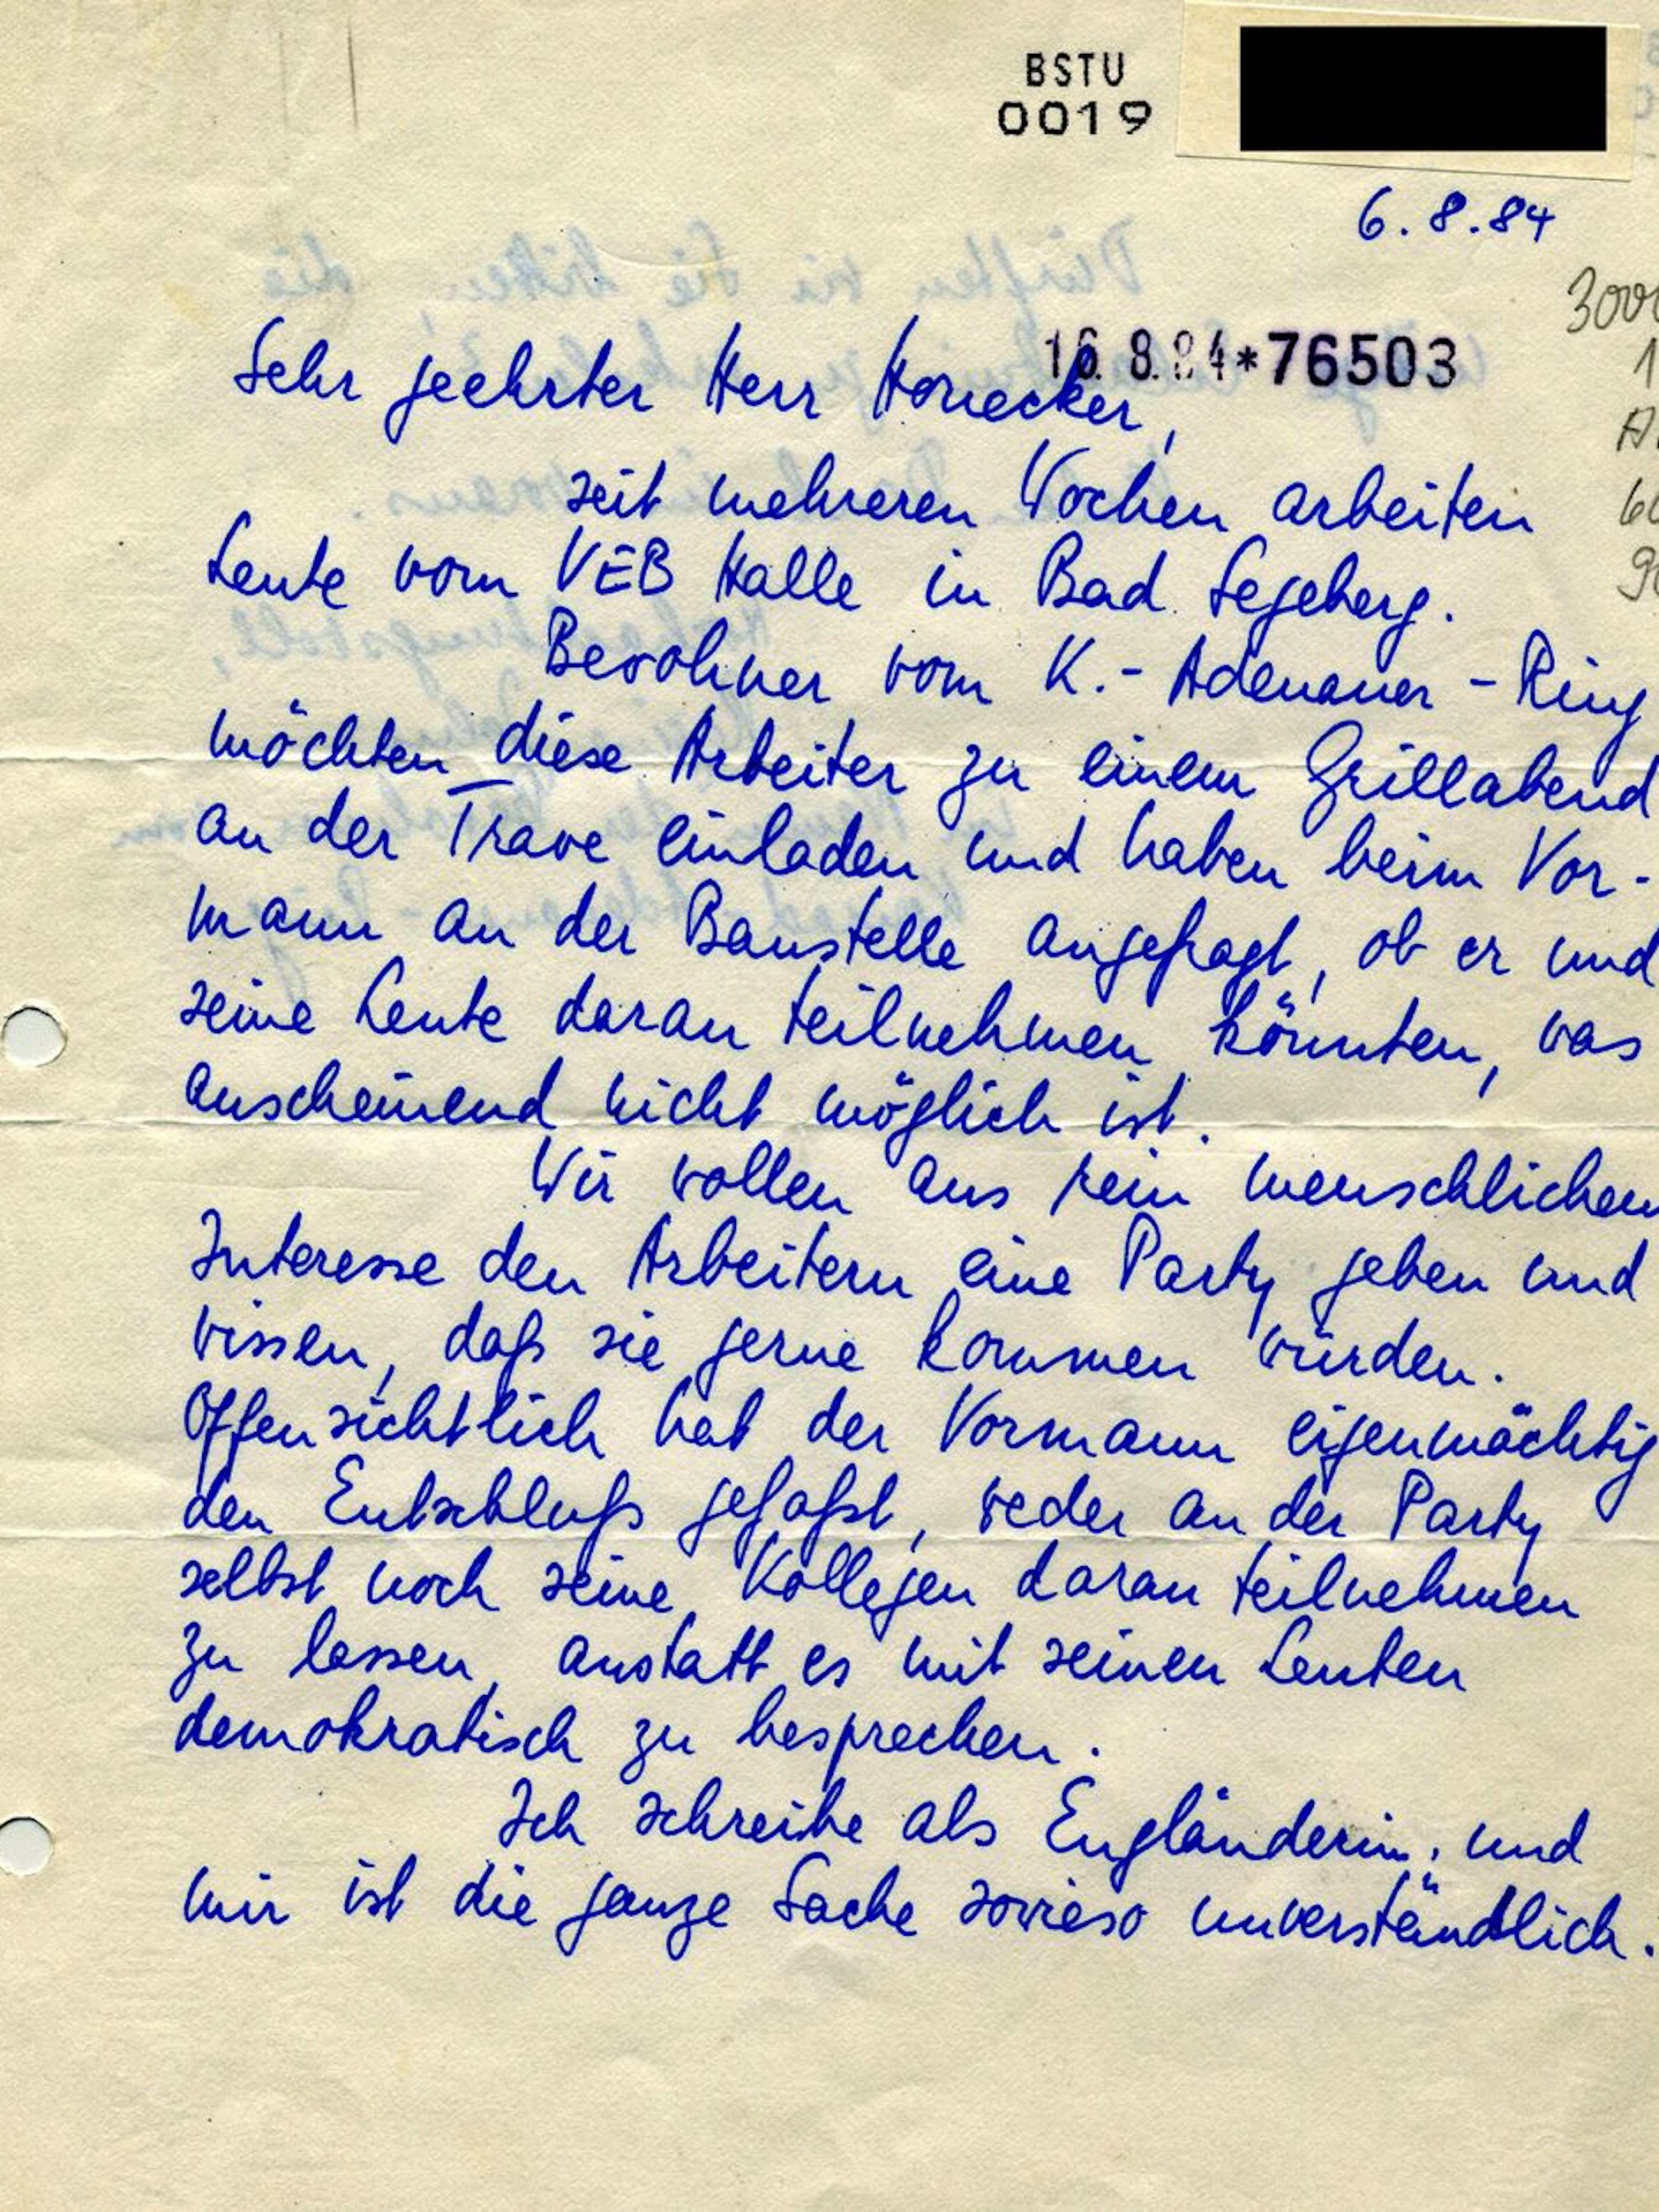 BSTU
0019
6.8.84
16. 8. 84*76503
Sehr geehrter Herr Honecker,
seit mehreren Wochen arbeiten
Leute vom VEB Halle in Bad Segeberg.
Bewohner vom K.-Adenauer-Ring
möchten diese Arbeiter zu einem Grillabend
an der Trave einladen und haben beim Vor-
mann an der Baustelle angefragt, ob er und
seine Leute daran teilnehmen könnten, was
anscheinend nicht möglich ist.
Wir wollen aus rein menschlichen
Interesse den Arbeitern eine Party geben und
wissen, daß sie gerne kommen würden.
Offensichtlich hat der Vormann eigenmächtig
den Entschluß gefaßt, weder an der Party
selbst noch seine Kollegen daran teilnehmen
zu lassen, anstatt es mit seinen Leuten
demokratisch zu besprechen.
Ich schreibe als Engländerin, und
mir ist die ganze Sache sowieso unverständlich.